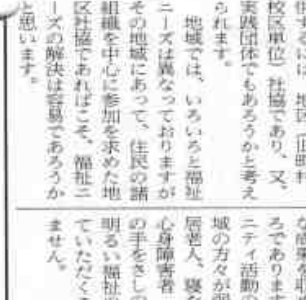 校区単位）社協であり、又、
実践団体でもあろうかと考え
られます。
地域では、いろいろと福祉
ニーズは異なっておりますが
その地域にあって、住民の諸
組織を中心に参加を求めた地
区社協であればこそ、福祉ニ
ーズの解決は容易であろうか
と思います。
ろであります
ニティ活動の
域の方々が
居老人、寝
心身障害者
の手をさしの
明るい福祉の
ていただくま
ません。